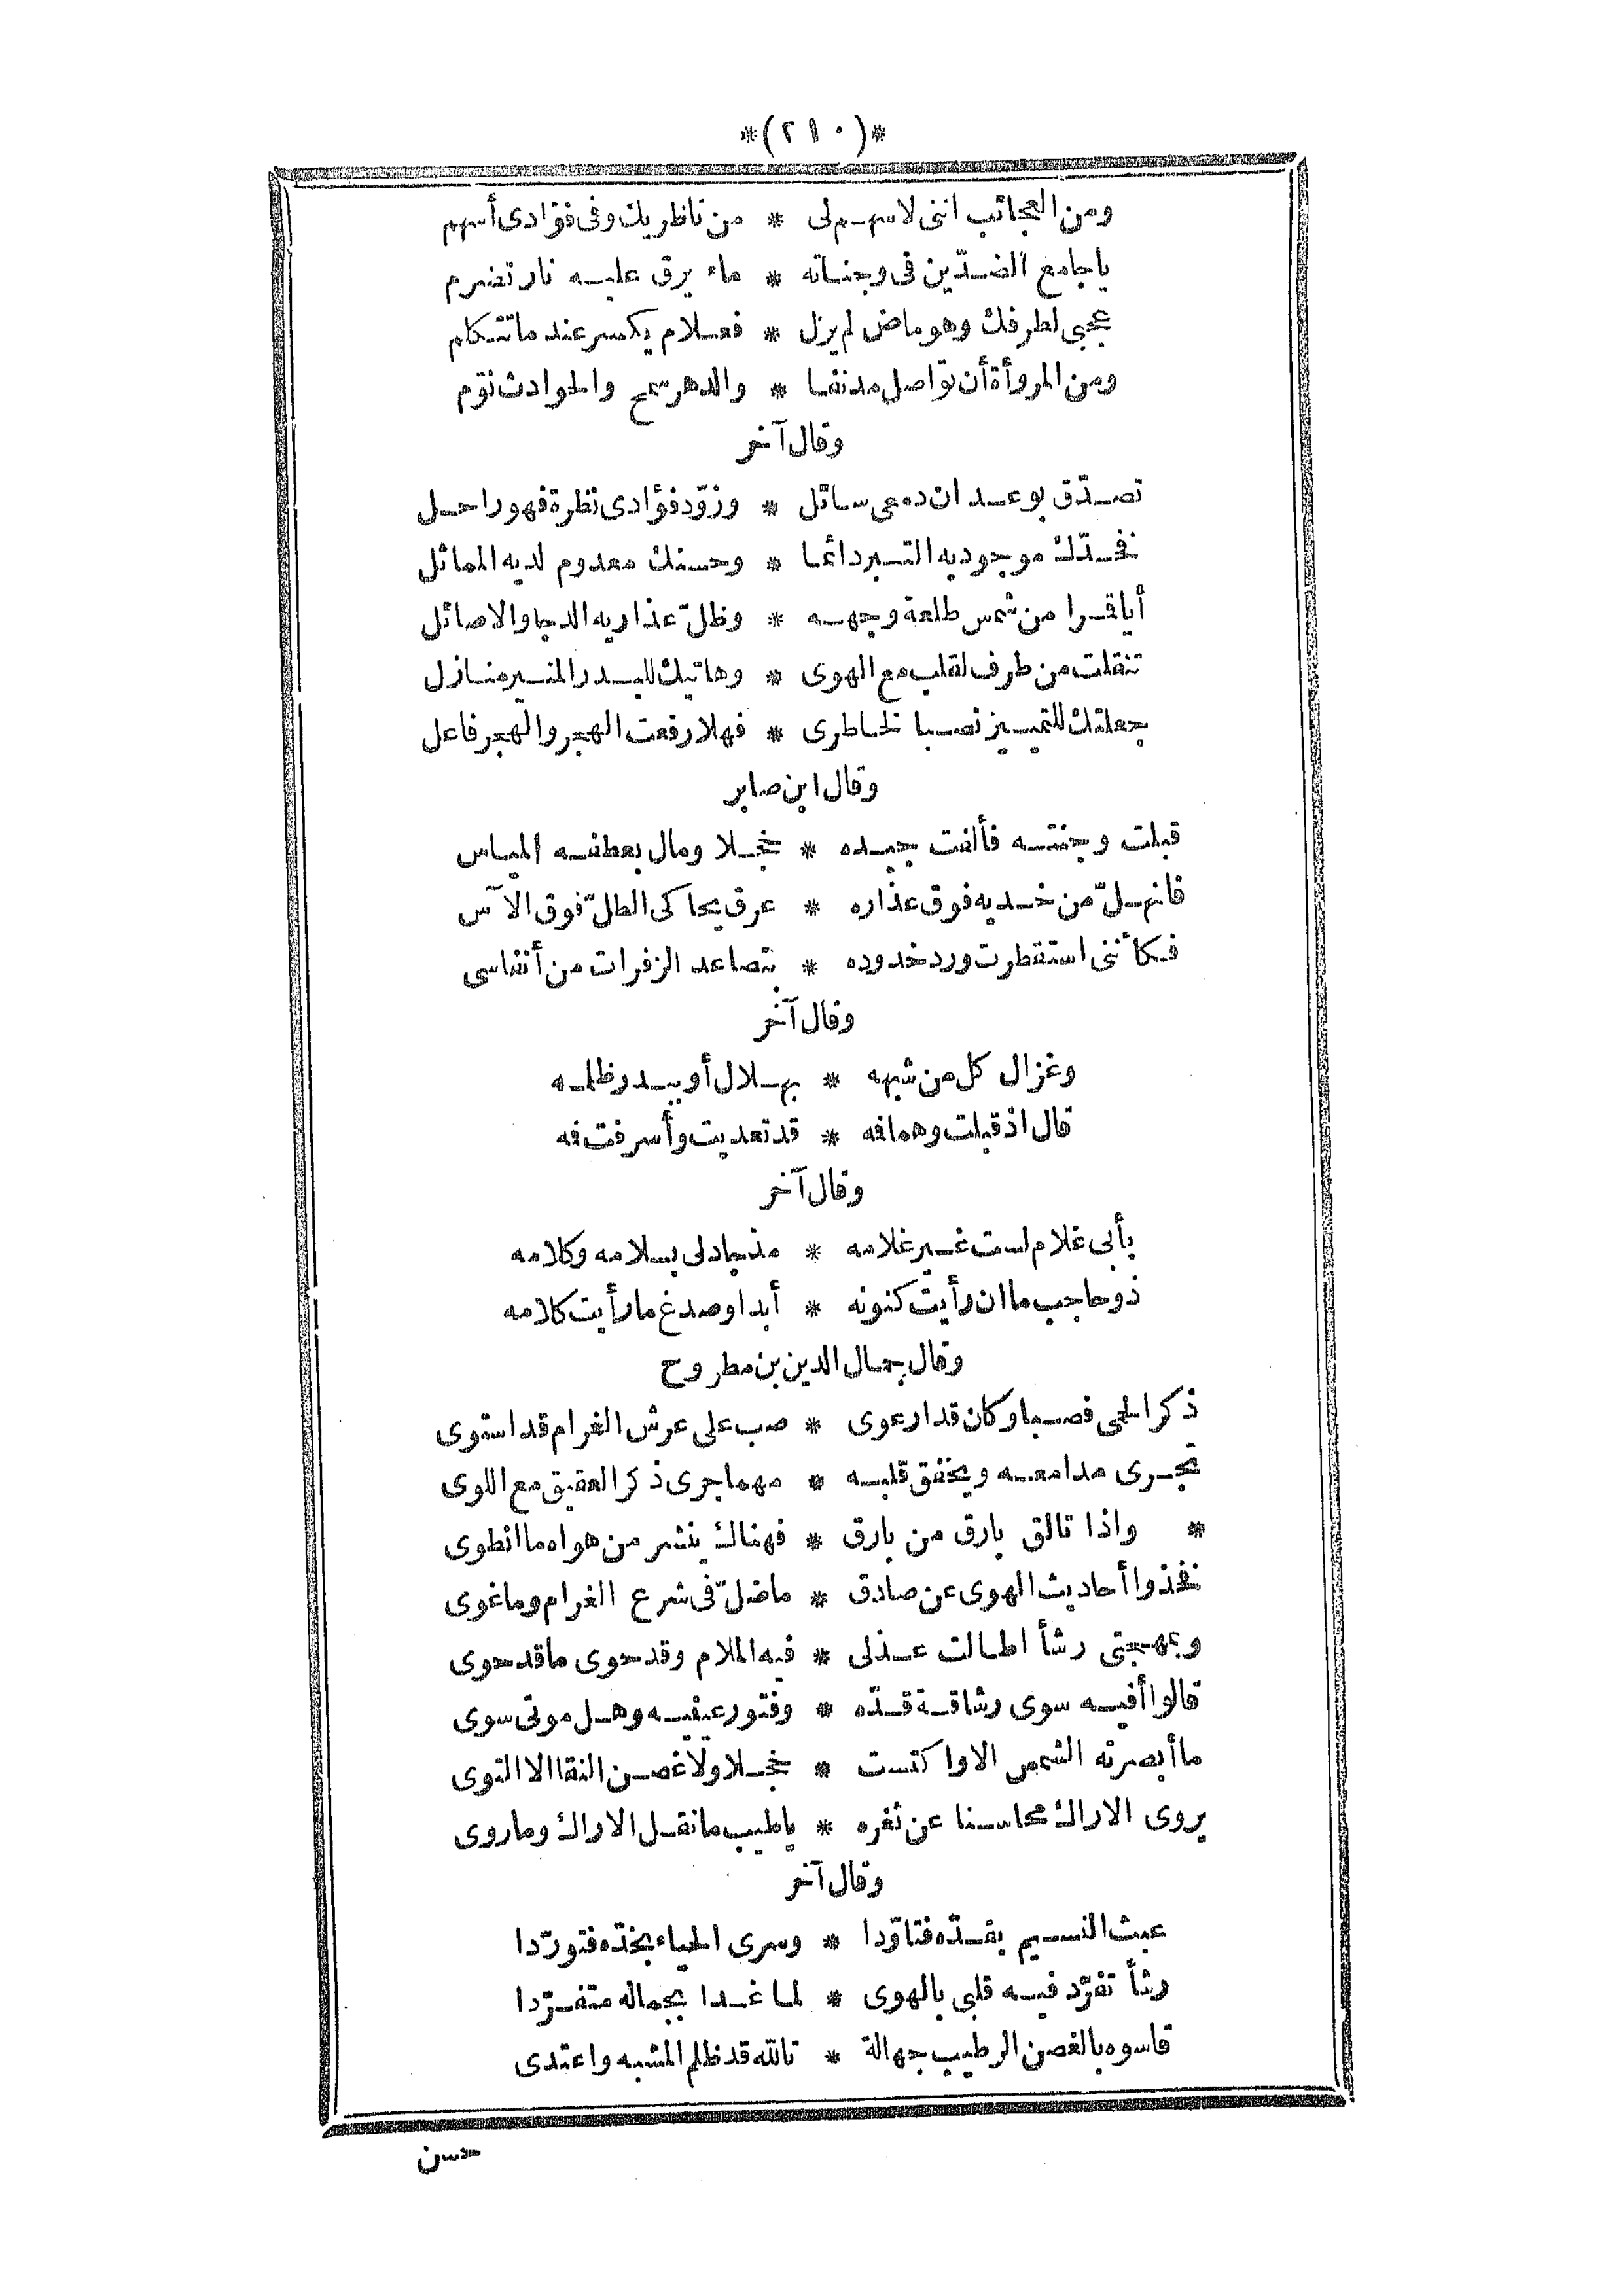 *(٢١٠)*
ومن العجائب اننى لاسهم لى * من ناظريك وفى فؤادى أسهم
ياجامع الضدّين فى وجناته * ماء يرق عليه نار تضرم
عجبى لطرفك وهو ماض لم يزل * فعلام يكسر عند ماتتكلم
ومن المروأة أن تواصل مدنفا * والدهر سمح والحوادث نوّم
وقال آخر
تصدّق بوعد ان دمعى سائل * وزوّد فؤادى نظرة فهو راحل
نخدّك موجود به التبر دائما * وحسنك معدوم لديه المماثل
أياقمرا من شمس طلعة وجهه * وظلّ عذاريه الدجا والاصائل
تنقلت من طرف لقلب مع الهوى * وهاتيك للبدر المنير منازل
جعلتك للتمييز نصبا لخاطرى * فهلا رفعت الهجر والهجر فاعل
وقال ابن صابر
قبلت وجنته فألفت جيده * خجلا ومال بعطفه المياس
فانهلّ من خديه فوق عذاره * عرق يحاكى الطلّ فوق الآس
فكأننى استقطرت ورد خدوده * بتصاعد الزفرات من أنفاسى
وقال آخر
وغزال كل من شبهه * بهلال أو ببدر ظلمه
قال اذ قبلت وهمافه * قد تعديت وأسرفت فه
وقال آخر
بأبى غلام لست غير غلامه * مذ جاد لى بسلامه وكلامه
ذو حاجب ما ان رأيت كنونه * أبدا وصدغ مارأيت كلامه
وقال جمال الدين بن مطروح
ذكر الحمى فصبا وكان قد ارعوى * صب على عرش الغرام قد استوى
تجرى مدامعه ويخفق قلبه * مهما جرى ذكر العقيق مع اللوى
* واذا تالق بارق من بارق * فهناك ينشر من هواه ما انطوى
نخذوا أحاديث الهوى عن صادق * ماضلّ فى شرع الغرام وماغوى
وبمهجتى رشأ اطالت عذلى * فيه الملام وقد حوى ماقد حوى
قالوا أفيه سوى رشاقة قدّه * وفتور عينيه وهل موتى سوى
ماأبصرته الشمس الا واكتست * خجلا ولا غصن النقا الا التوى
يروى الاراك محاسنا عن ثغره * ياطيب مانقل الاراك وماروى
وقال آخر
عبث النسيم بقدّه فتاوّدا * وسرى الحياء بخدّه فتورّدا
رشأ تفرّد فيه قلبى بالهوى * لما غدا بجماله متفرّدا
قاسوه بالغصن الرطيب جهالة * تالله قد ظلم المشبه واعتدى
حسن